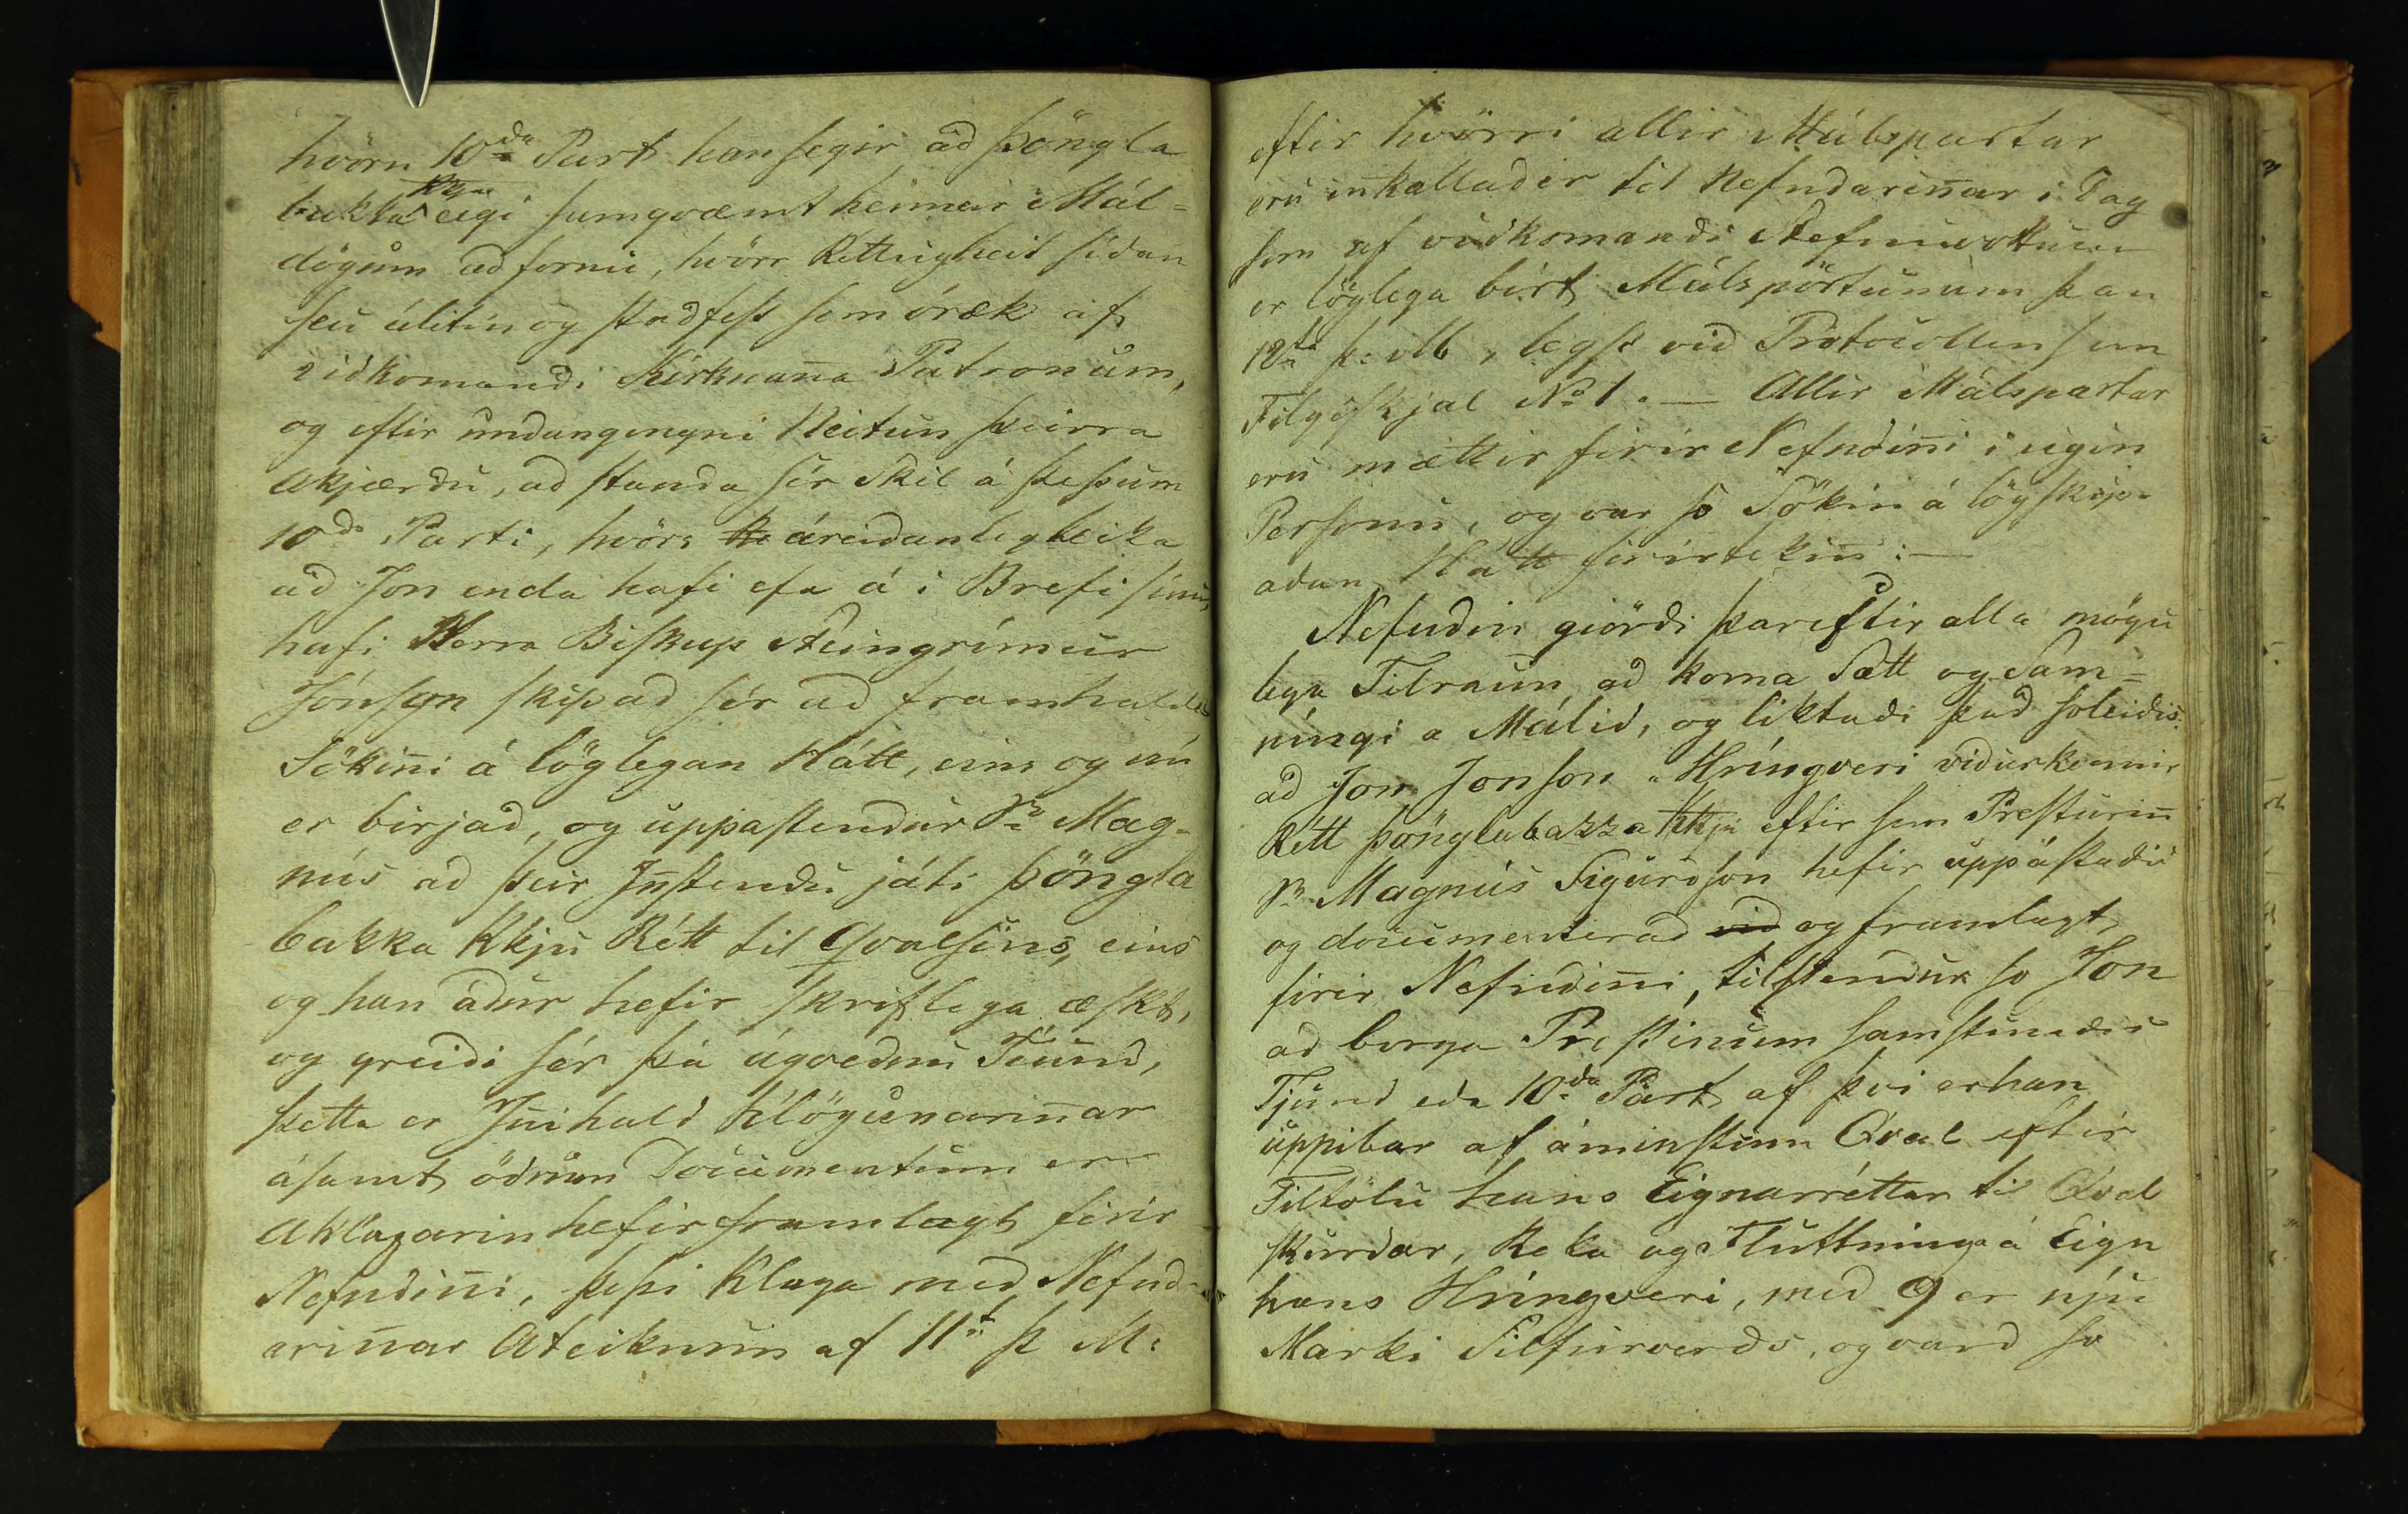 hvörn 10da Part han segir að Þöngla
bakka Kkju eigi samqvæmt hennar Mál-
dögum að fornu, hvörr Rettugheit síðan
séu álitin og staðfest sem óræk af
viðkomandi Kirknanna Patronum,
og eftir undangengni Neitun þeirra
Akjærðu, að standa sér Skil á þessum
10da Parti, hvörs áreiðanlegleika
að Jon enda hafi efa á í Brefi sínu,
hafi Herra Biskup Steingrímur
Jónsson skipað sér að framhalda
Sökinni á löglegan Hátt, eins og nú
er birjað, og uppastendur Sr Mag-
nús að þeir Instendu játi Þöngla
bakka Kkju Rétt til Qvalsins, eins
og han áður hefir skriflega æskt,
og greiði sér þá ágreindu Tíund,
þetta er Innihald Klögunarinnar
ásamt öðrum Documentum er
Aklagarin hefir framlagt firir
Nefndinni, þessi Klaga með Nefnd-
arinnar Ateiknun af 11t þ M:
eftir hvörri allir Málspartar
eru innkallaðir til Nefndarinnar i Dag
sem af viðkomandi Stefnuvottum
er löglega birt Málspörtunum þan
12ta þ: M6, legst við Protocollen sem
Filgiskjal No 1. — Allir Málspartar
eru mættir firir Nefndinni i eigin
Persónu, og var so Sökin á lögskip-
aðan Hátt firirtekin: —
Nefndin giörði þareftir alla mögu
lega Tilraun að koma Sætt og Sam-
níngi a Málið, og liktaði það soleiðis:
að Jon Jonson a Hríngveri viðurkennir
Rétt Þönglabakka Kkju eftir sem Presturinn
Sr Magnús Sigurðson hefir uppástaðið
og documenterað við og framlagt,
firir Nefndinni, tilstendur so Jon
að borga Prestinum samstundis
Tjund eda 10da Part af því er han
uppibar af áminstum Qval eftir
Tiltölu hans Eignarréttar til Qval
skurðar, Reka og Fluttnings á Eign
hans Hríngveri, með 9 er nýu
Marki Silfurverðs, og varð so